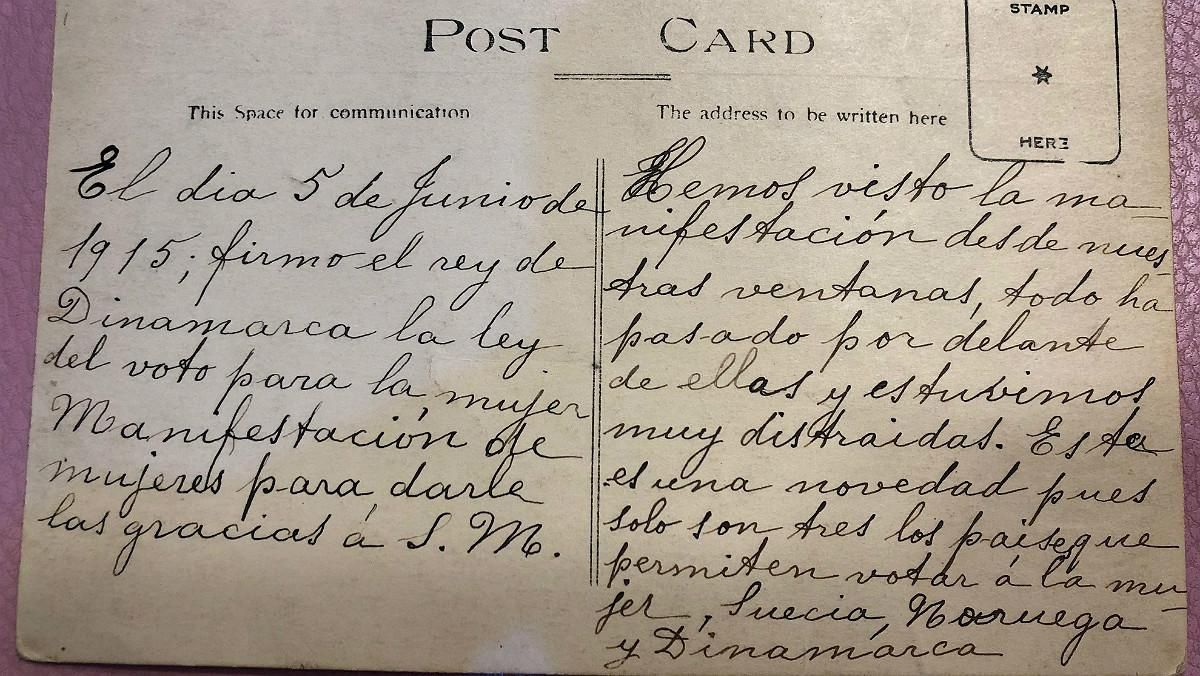 POST CARD
STAMP
HERE
This Space for communication
The address to be written here
El dia 5 de Junio de
1915; firmo el rey de
Dinamarca la ley
del voto para la mujer
Manifestación de
mujeres para darle
las gracias á S. M.
Hemos visto la ma-
nifestación desde nues
tras ventanas, todo ha
pasado por delante
de ellas y estuvimos
muy distraidas. Esta
es una novedad pues
solo son tres los paises que
permiten votar á la mu-
jer, Suecia, Noruega
y Dinamarca